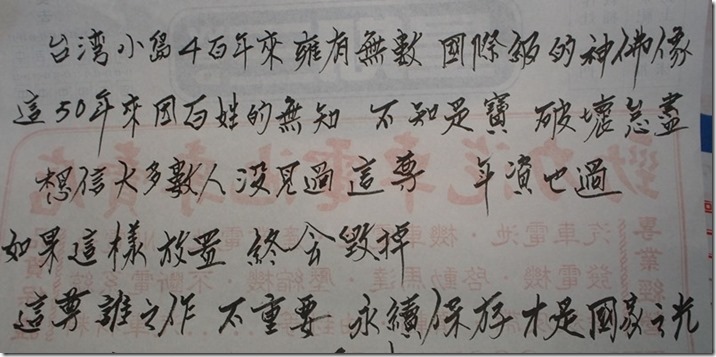 台湾小島4百年來擁有無數 國際級的神佛像
這50年來因百姓的無知 不知是寶 破壞怠盡
想信大多數人没見過這尊 年資也過
如果這樣放置 終会毀掉
這尊誰之作 不重要 永續保存才是國家之光
汽車電池
專業經
汽車電池·機車
發電機·啓動馬達·壓縮機·不斷電